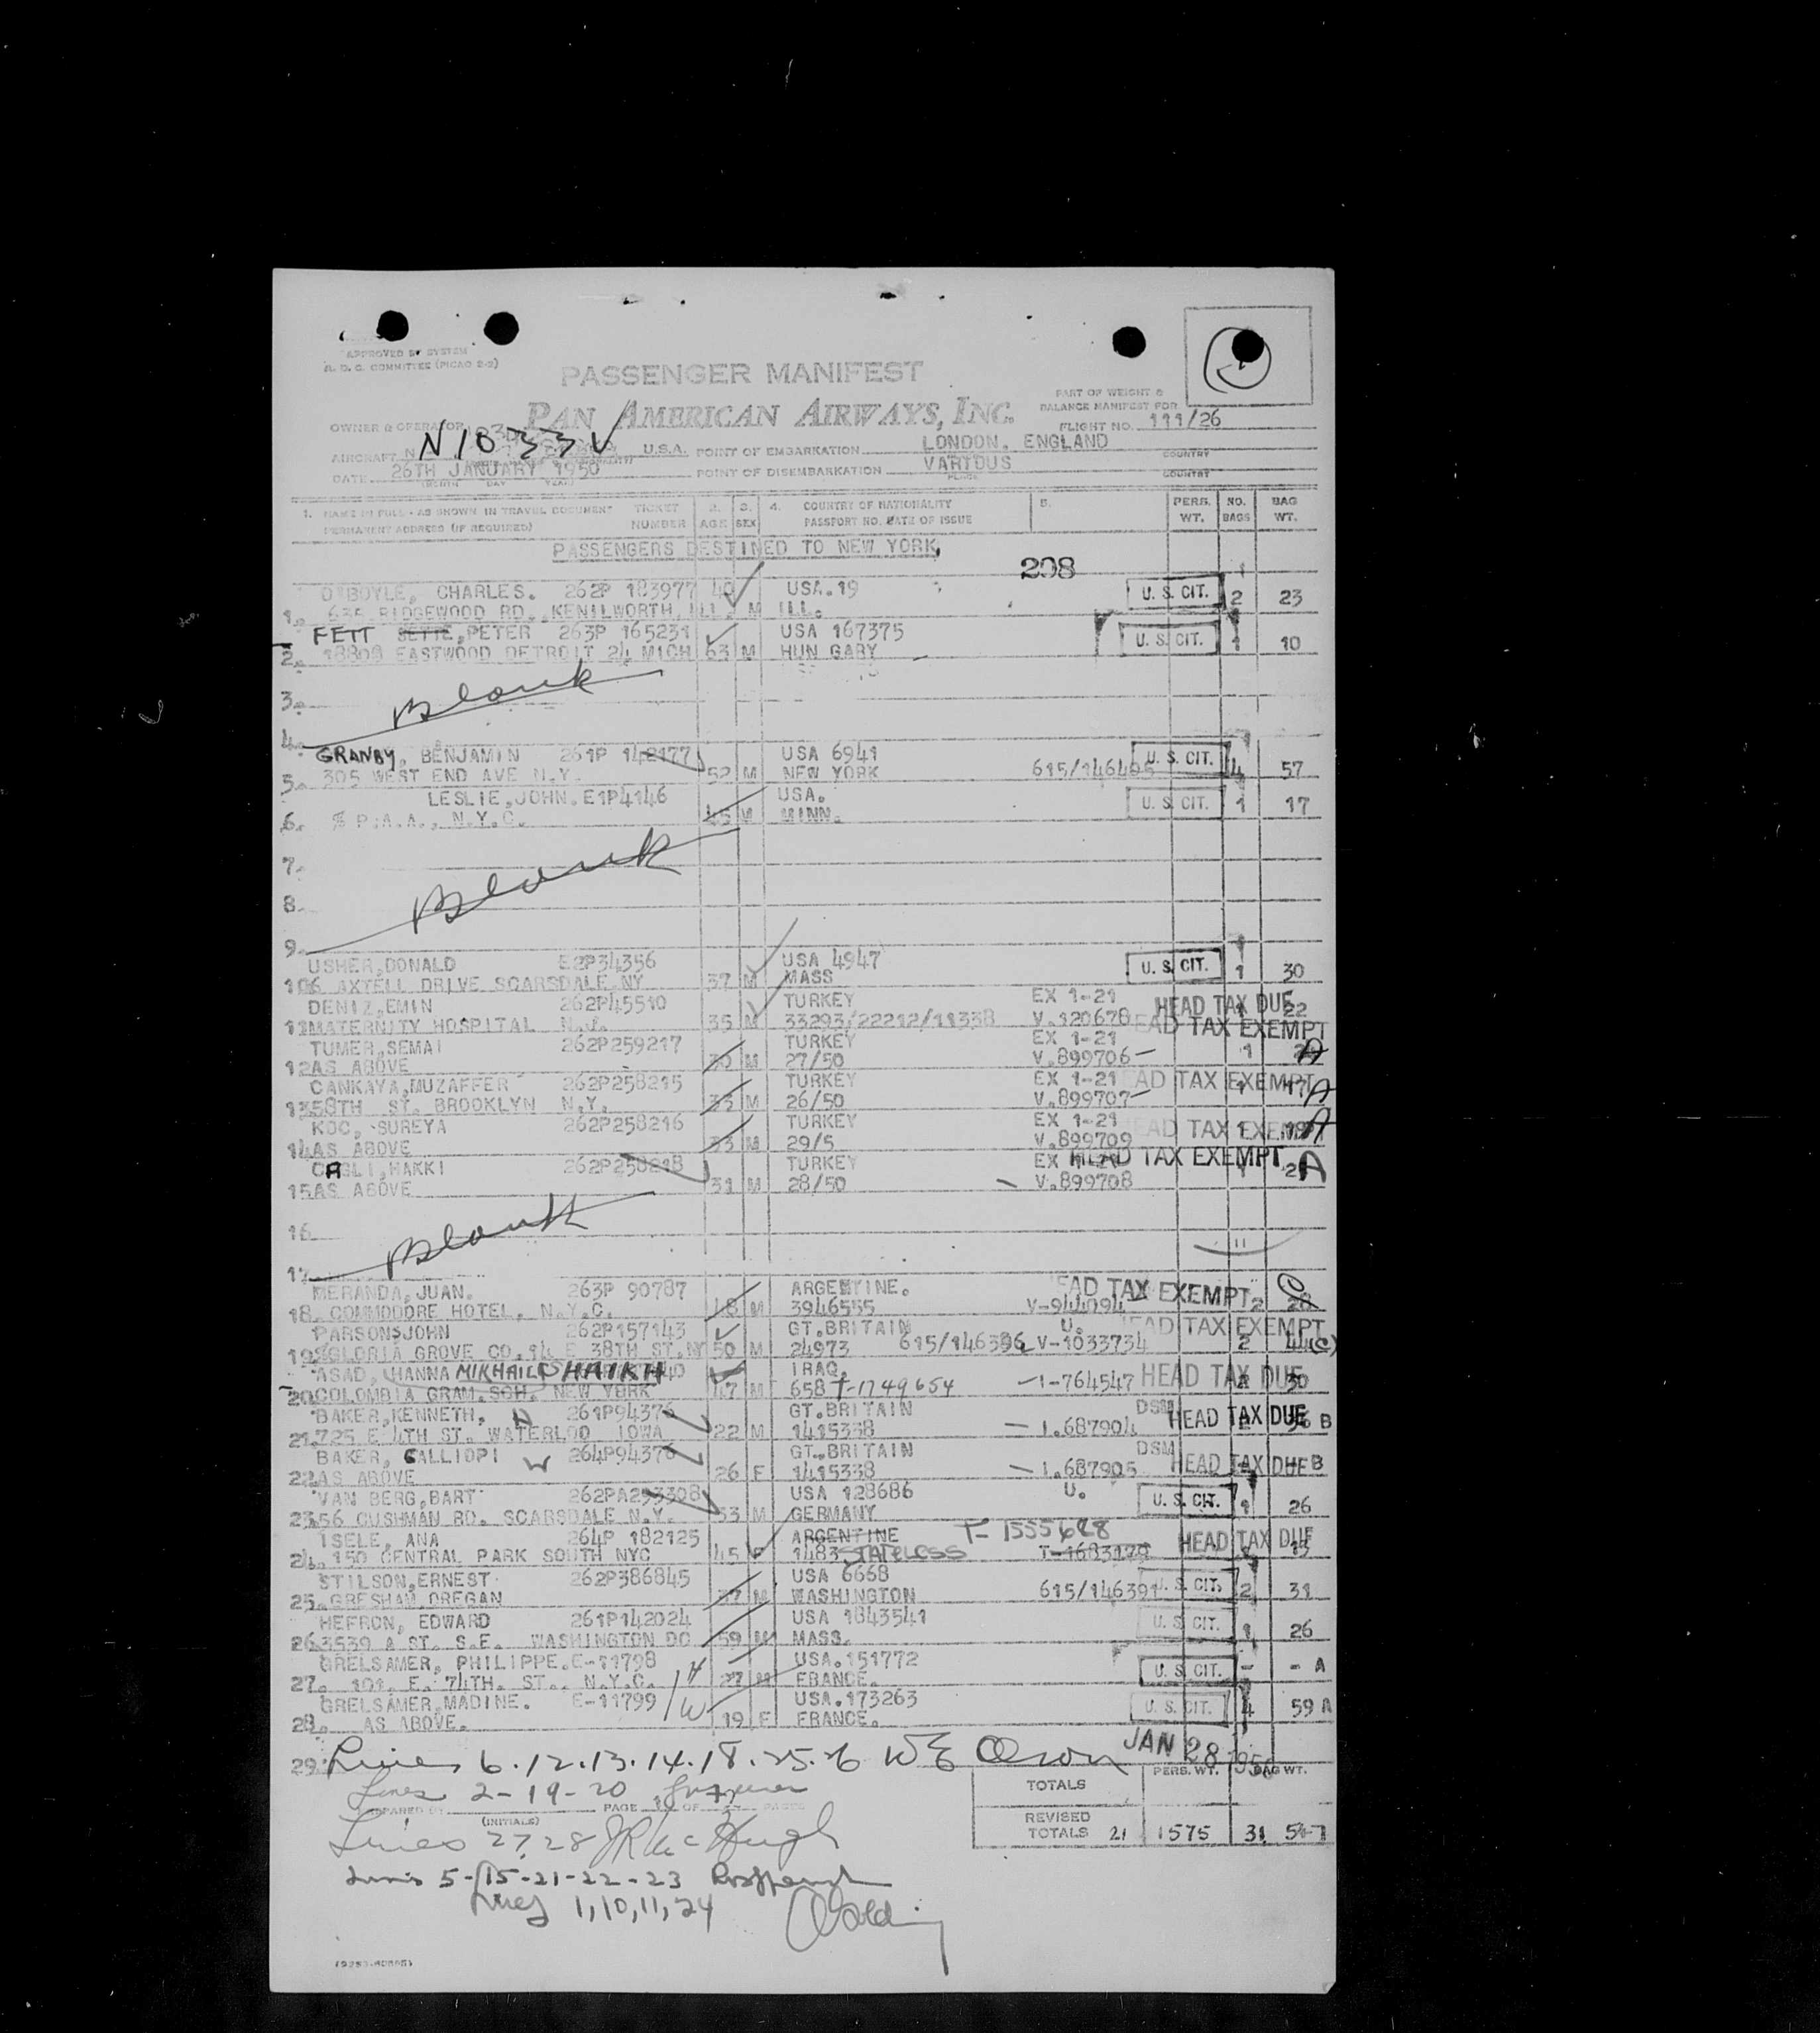 APPROVED BY SYSTEM
A. D. C. COMMITTEE (PICAO 2-2)
PASSENGER MANIFEST
PAN AMERICAN AIRWAYS, INC.
PART OF WEIGHT &
BALANCE MANIFEST FOR
FLIGHT NO. 111/26
OWNER & OPERATOR
N1033V
AIRCRAFT N U.S.A. POINT OF EMBARKATION LONDON. ENGLAND
COUNTRY
DATE 26TH JANUARY 1950 POINT OF DISEMBARKATION VARIOUS
MONTH DAY YEAR PLACE COUNTRY
1. NAME IN FULL - AS SHOWN IN TRAVEL DOCUMENT TICKET 2. 3. 4. COUNTRY OF NATIONALITY 5. PERS. NO. BAG
PERMANENT ADDRESS (IF REQUIRED) NUMBER AGE SEX PASSPORT NO. DATE OF ISSUE WT. BAGS WT.
PASSENGERS DESTINED TO NEW YORK
208
O'BOYLE, CHARLES. 262P 183977 40 USA.19
1. 635 RIDGEWOOD RD. KENILWORTH, ILL. M ILL. U. S. CIT. 2 23
FETT PETER 263P 165231 USA 167375
2. 18808 EASTWOOD DETROIT 24 MICH 63 M HUN GARY U. S. CIT. 1 10
3. Blank
4.
GRANBY, BENJAMIN 261P 142177 USA 6941
5. 305 WEST END AVE N.Y. 52 M NEW YORK 615/146406 U. S. CIT. 4 57
LESLIE, JOHN. E1P4146 USA.
6. % P.A.A., N.Y.C. 45 M MINN. U. S. CIT. 1 17
7.
8. Blank
9.
USHER, DONALD E2P34356 USA 4947
10 6 AXTELL DRIVE SCARSDALE NY 37 M MASS U. S. CIT. 1 30
DENIZ, EMIN 262P45510 TURKEY EX 1-21 HEAD TAX DUE
11 MATERNITY HOSPITAL N.J. 35 M 33293/22212/11338 V.120678 22
TUMER, SEMAI 262P259217 TURKEY EX 1-21 HEAD TAX EXEMPT
12 AS ABOVE 30 M 27/50 V.899706 1 A
CANKAYA, MUZAFFER 262P258215 TURKEY EX 1-21 HEAD TAX EXEMPT
13 58TH ST. BROOKLYN N.Y. 35 M 26/50 V.899707 1 17 A
KOC, SUREYA 262P258216 TURKEY EX 1-21 HEAD TAX EXEMPT
14 AS ABOVE 33 M 29/5 V.899709 1 19 A
CAGLI, HAKKI 262P258218 TURKEY EX 1-21 HEAD TAX EXEMPT
15 AS ABOVE 31 M 28/50 V.899708 A
16
Blank 11
17
MERANDA, JUAN. 263P 90787 ARGENTINE. HEAD TAX EXEMPT
18. COMMODORE HOTEL, N.Y.C. 18 M 3946555 V-944094 2 28 C
PARSONS JOHN 262P157143 GT.BRITAIN U. HEAD TAX EXEMPT
19 GLORIA GROVE CO. 14 E 38TH ST.NY 50 M 24973 615/146396 V-1033734 2 44 (C)
ASAD, HANNA MIKHAIL SHAIKH IRAQ. HEAD TAX DUE
20 COLOMBIA GRAM. SCH. NEW YORK 47 M 658 T-1749654 I-764547 30
BAKER, KENNETH. H 261P94376 GT.BRITAIN DSM HEAD TAX DUE
21. 725 E 4TH ST. WATERLOO IOWA 22 M 1415338 I.687904 B
BAKER, CALLIOPI W 264P94376 GT.BRITAIN DSM HEAD TAX DUE
22 AS ABOVE 26 F 1415338 I.687905 B
VAN BERG, BART 262PA293308 USA 128686 U.
23 56 CUSHMAN RD. SCARSDALE N.Y. 53 M GERMANY U. S. CIT. 1 26
ISELE, ANA 264P 182125 ARGENTINE T-1555628 HEAD TAX DUE
24. 150 CENTRAL PARK SOUTH NYC 45 F 1483 STATELESS T-1683178 15
STILSON, ERNEST 262P386845 USA 6668
25. GRESHAM, OREGAN 37 M WASHINGTON 615/146391 U. S. CIT. 2 31
HEFRON, EDWARD 261P142024 USA 1843541
26 3539 A ST. S.E. WASHINGTON DC 59 M MASS. U. S. CIT. 1 26
GRELSAMER, PHILIPPE. E-11798 H USA.151772
27. 101. E. 74TH. ST., N.Y.C. 27 M FRANCE. U. S. CIT. - - A
GRELSAMER, MADINE. E-11799 W USA.173263
28. AS ABOVE. 19 F FRANCE. U. S. CIT. 4 59 A
JAN 28 1950
29 Lines 6.12.13.14.18.25.26 W E Olson
Lines 2-19-20
PERS. WT. BAG WT.
TOTALS
PREPARED BY PAGE 1 OF PAGES
(INITIALS)
REVISED
TOTALS 21 1575 31 547
Lines 27, 28 J R McHugh
Lines 5-15-21-22-23
Lines 1,10,11,24